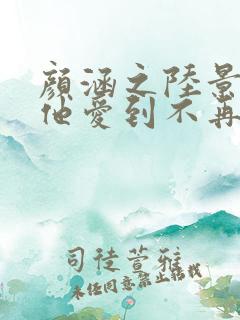 顏涵之陸景
他愛到不再
司徒萱雅
未經同意禁止轉載